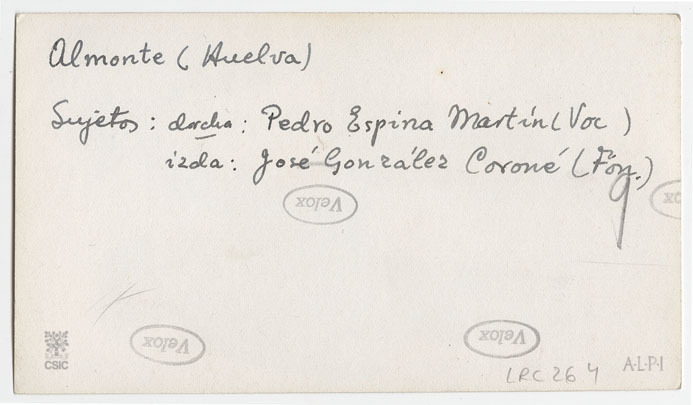 Almonte (Huelva)
Sujetos: dorcha: Pedro Espina Martín (Voc )
izda: José González Coroné (Fon.)
Velox
Velox
Velox
CSIC
LRC 26 4
A·L·P·I